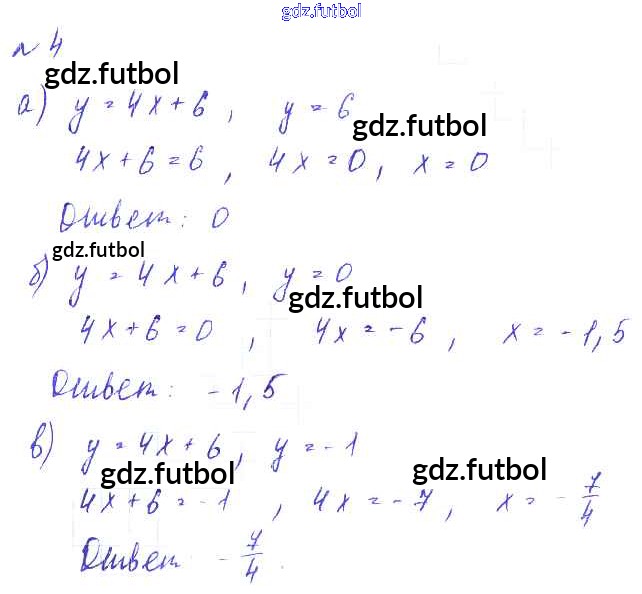 gdz.futbol
№ 4
gdz.futbol
а) y = 4x + 6 , y = 6
gdz.futbol
4x + 6 = 6 , 4x = 0 , x = 0
Ответ: 0
gdz.futbol
б) y = 4x + 6 , y = 0
gdz.futbol
4x + 6 = 0 , 4x = - 6 , x = - 1,5
Ответ: - 1,5
в) y = 4x + 6 , y = - 1
gdz.futbol gdz.futbol
4x + 6 = - 1 , 4x = - 7 , x = - 7/4
Ответ - 7/4 .